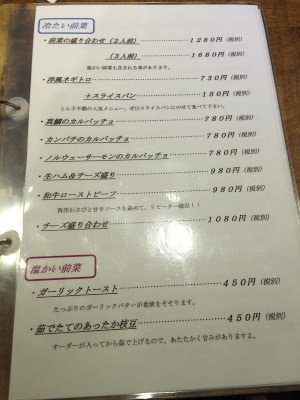 冷たい前菜
・前菜の盛り合わせ（２人前）……………１２８０円（税別）
（３人前）……………１６８０円（税別）
温かい前菜も含まれる事があります。
・洋風ネギトロ……………７３０円（税別）
＋スライスパン……………１５０円（税別）
とん子不動の人気メニュー。ぜひスライスパンにのせて食べて下さい。
・真鯛のカルパッチョ……………７８０円（税別）
・カンパチのカルパッチョ……………７８０円（税別）
・ノルウェーサーモンのカルパッチョ……………７８０円（税別）
・生ハム＆チーズ盛り……………９８０円（税別）
・和牛ローストビーフ……………９８０円（税別）
西洋わさびと甘辛ソースを絡めて。リピーター続出！！
・チーズ盛り合わせ……………１０８０円（税別）
温かい前菜
・ガーリックトースト……………４５０円（税別）
たっぷりのガーリックバターが食欲をそそります。
・茹でたてのあったか枝豆……………４５０円（税別）
オーダーが入ってから茹で上げるので、あたたかく甘みがありますよ。